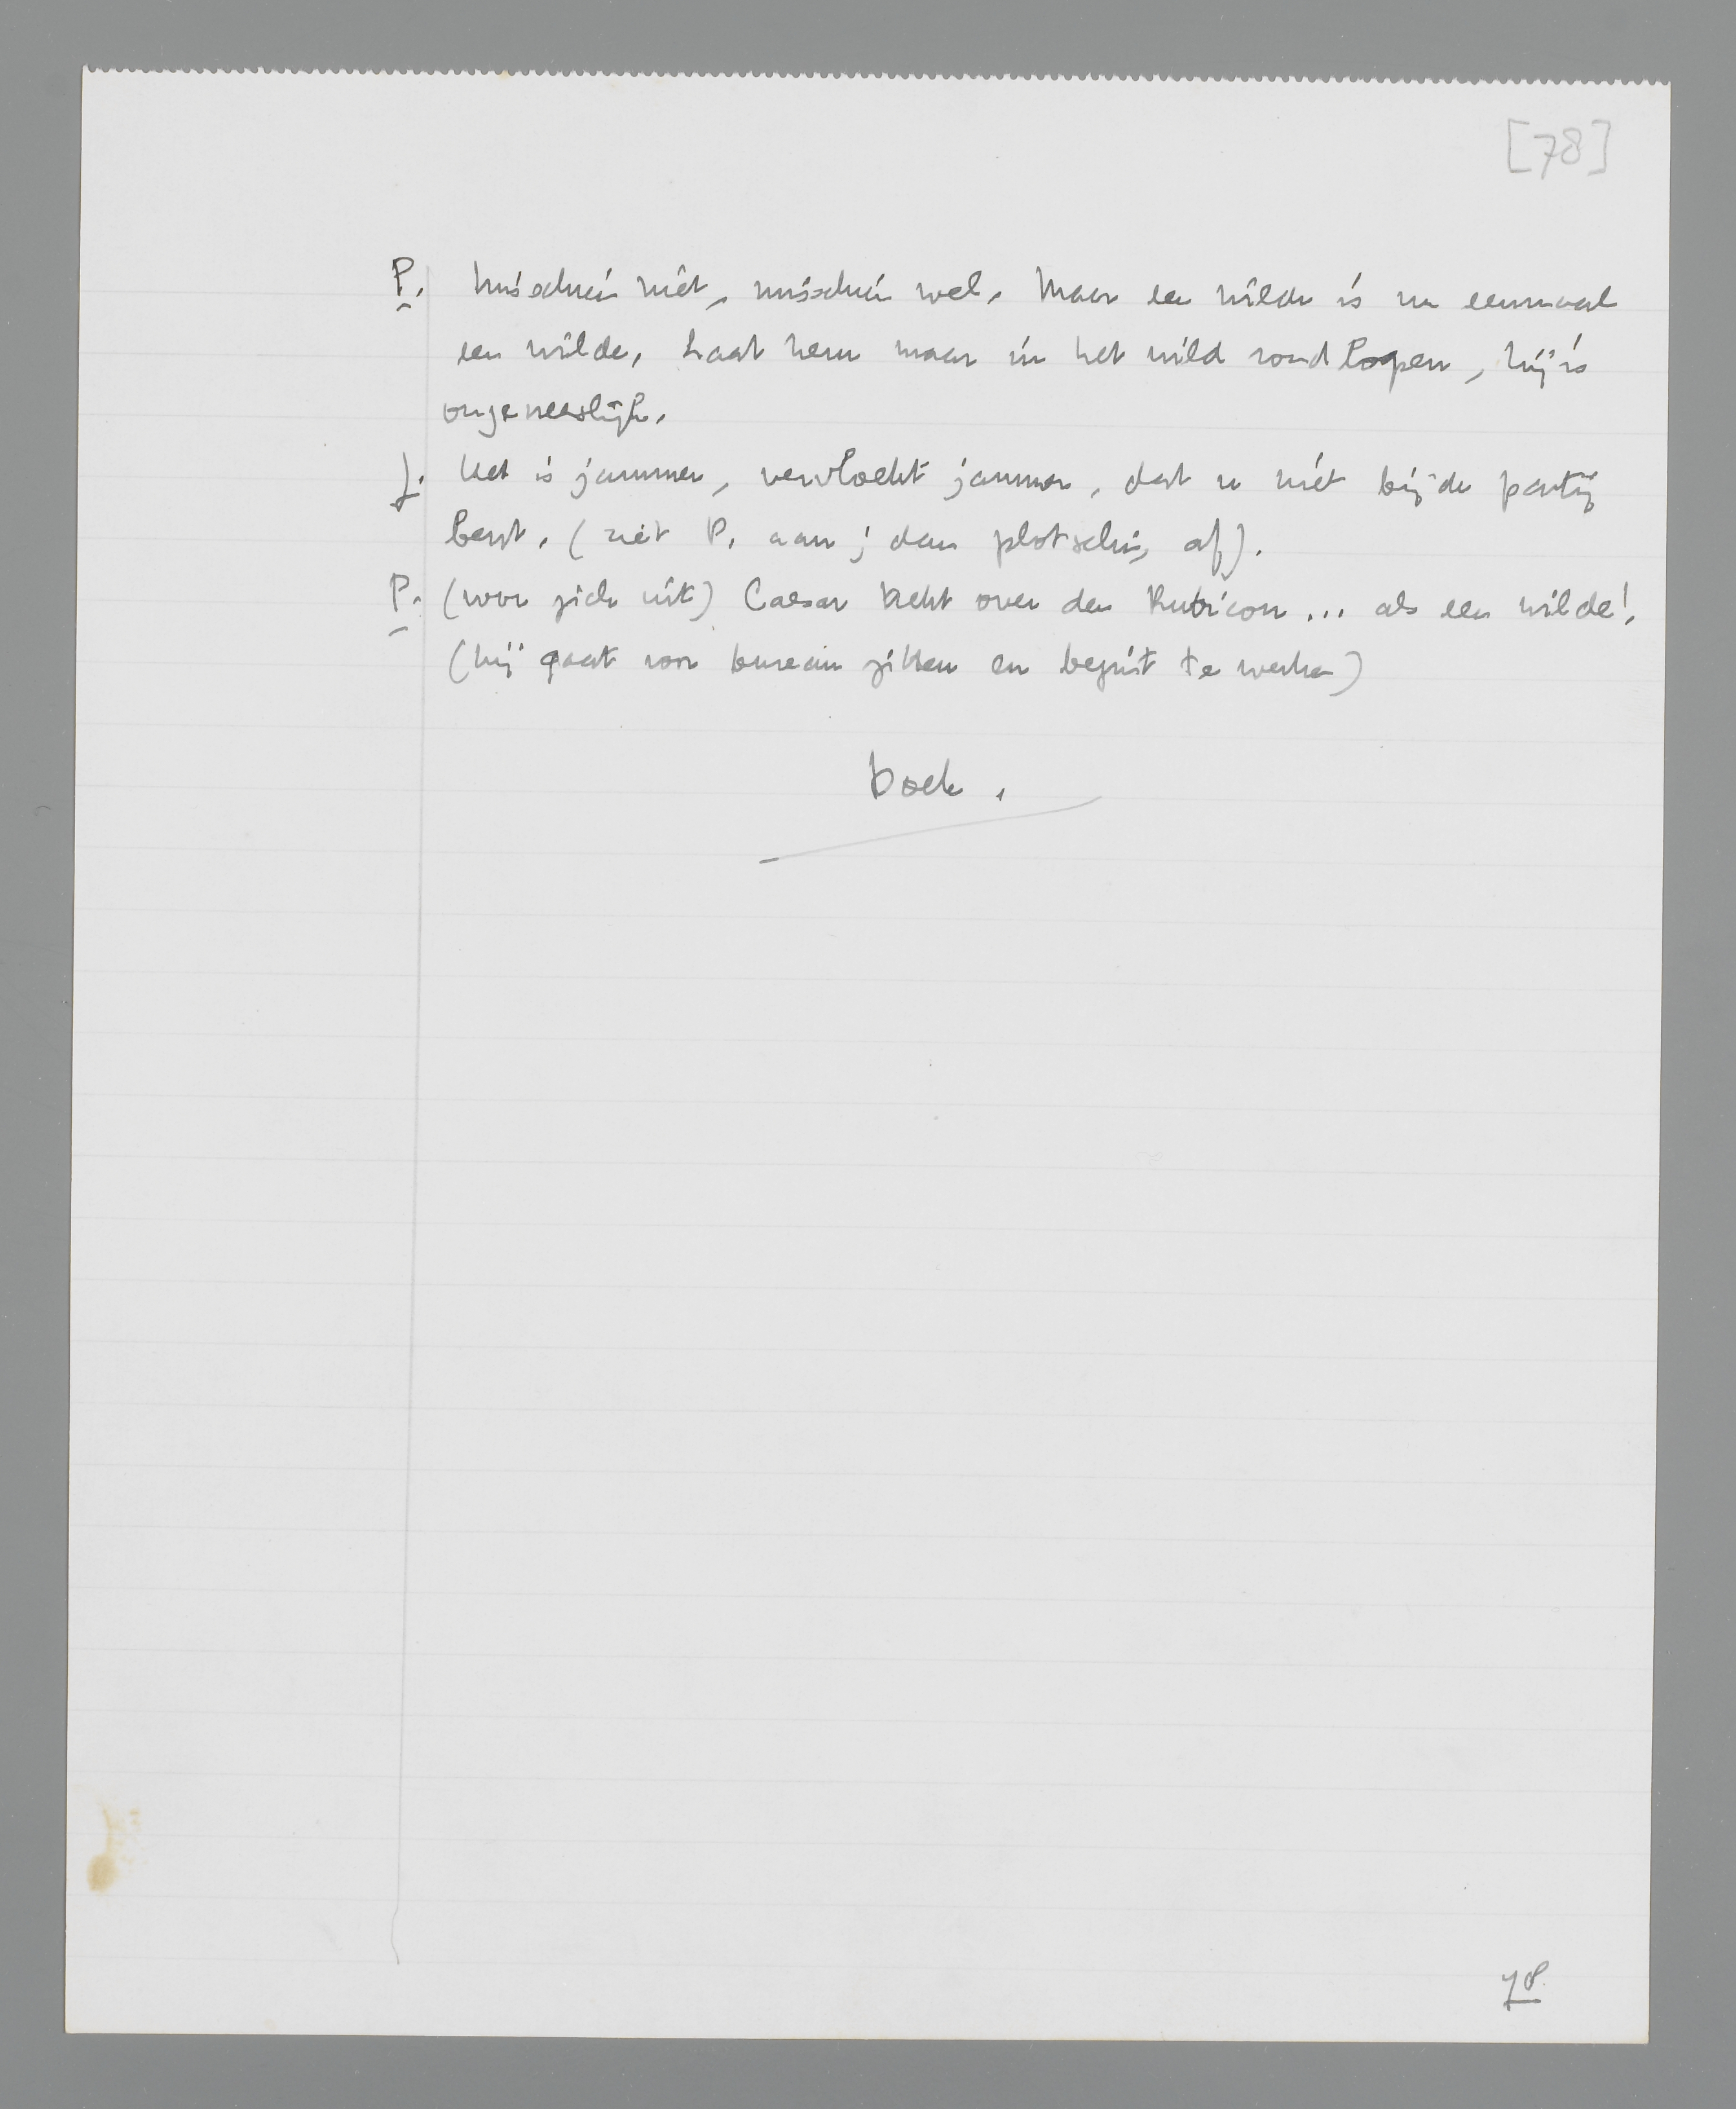 [78]
P. Misschien niet, misschien wel. Maar een wilde is nu eenmaal
een wilde. Laat hem maar in het wild rondlopen, hij is
ongeneeslijk.
J. Het is jammer, vervloekt jammer, dat u niet bij de partij
bent. (ziet P. aan; dan plotseling af).
P. (voor zich uit) Caesar trekt over den Rubicon... als een wilde!
(hij gaat voor bureau zitten en begint te werken)
Doek.
78